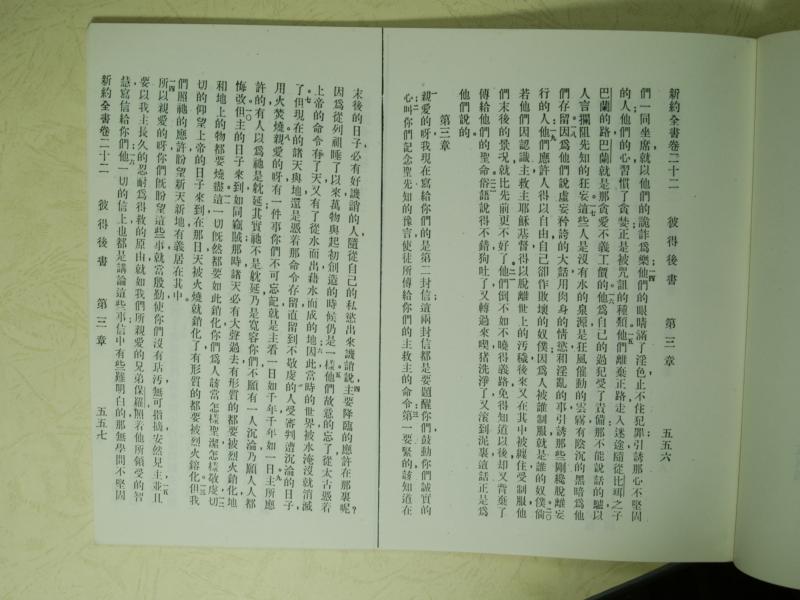 新約全書卷二十二 彼得後書 第三章 五五六
們一同坐席就以他們的詭詐爲樂他們的眼睛滿了淫色止不住犯罪引誘那心不堅固
的人他們的心習慣了貪婪正是被咒詛的種類他們離棄正路走入迷途隨從比珥之子
巴蘭的路巴蘭就是那貪愛不義工價的他爲自己的過犯受了責備那不能說話的驢以
人言攔阻先知的狂妄這些人是沒有水的泉源是狂風催動的雲霧有陰沉的黑暗爲他
們存留因爲他們說虛妄矜誇的大話用肉身的情慾和淫亂的事引誘那些剛纔脫離妄
行的人他們應許人得以自由自己卻作敗壞的奴僕因爲人被誰制服就是誰的奴僕倘
若他們因認識主救主耶穌基督得以脫離世上的汚穢後來又在其中被纏住受制服他
們末後的景況就比先前更不好了他們倒不如不曉得義路免得知道以後却又背棄了
傳給他們的聖命俗語說得不錯狗吐了又轉過來喫猪洗淨了又滾到泥裏這話正是爲
他們說的
第三章
親愛的呀我現在寫給你們的是第二封信這兩封信都是要題醒你們鼓動你們誠實的
心叫你們記念聖先知的豫言使徒所傳給你們的主救主的命令第一要緊的該知道在
末後的日子必有好譏誚的人隨從自己的私慾出來譏誚說主要降臨的應許在那裏呢?
因爲從列祖睡了以來萬物與起初創造的時候仍是一樣他們故意的忘了從太古憑着
上帝的命令有了天又有了從水而出藉水而成的地因此當時的世界被水淹沒就消滅
了但現在的諸天與地還是憑着那命令存留直留到不敬虔的人受審判遭沉淪的日子
用火焚燒親愛的呀有一件事你們不可忘記就是主看一日如千年千年如一日主所應
許的有人以爲祂是躭延其實祂不是躭延乃是寬容你們不願有一人沉淪乃願人人都
悔改但主的日子來到如同竊賊那時諸天必有大聲過去有形質的都要被烈火銷化地
和地上的物都要燒盡這一切既然都要如此銷化你們爲人該當怎樣聖潔怎樣敬虔切
切的仰望上帝的日子來到在那日天被火燒就銷化了有形質的都要被烈火鎔化但我
們照祂的應許盼望新天新地有義居在其中
所以親愛的呀你們既盼望這些事就當殷勤使你們沒有玷汚無可指摘安然見主並且
要以我主長久的忍耐爲得救的原由就如我們所親愛的兄弟保羅照着他所領受的智
慧寫信給你們他一切的信上也都是講論這些事信中有些難明白的那無學問不堅固
新約全書卷二十二 彼得後書 第三章 五五七